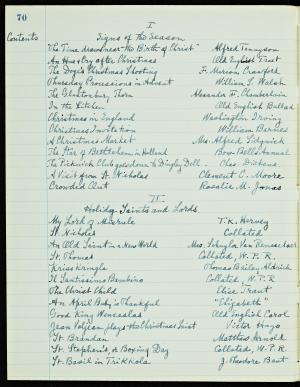 70
I
Contents Signs of the Season
"The Time draws near the Birth of Christ" Alfred Tennyson
An Hour after Christmas Old English Treat
The Doge's Christmas Shooting F. Marion Crawford
Thursday Processions in Advent William S. Walsh
The Glastonbury Thorn Alexander F. Chamberlain
In the Kitchen Old English Ballad
Christmas in England Washington Irving
Christmas Invitation William Barnes
A Christmas Market Mrs. Alfred Sidgwick
The Star of Bethlehem in Holland Bow-Bells Annual
The Pickwick Club goes down to Dingley Dell - Chas. Dickens
A Visit from St. Nicholas Clement C. Moore
Crowded Out Rosalie M. Jonas
II
Holiday Saints and Lords.
My Lord of Misrule T. K. Hervey
St. Nicholas Collated
An Old Saint in a New World Mrs. Schuyler Van Rensselaer
St. Thomas Collated, W. P. R.
Kriss Kringle Thomas Bailey Aldrich
Il Santissimo Bambino Collated, W. P. R
The Christ Child Elise Traut
An April Baby is Thankful "Elizabeth"
Good King Wenceslas Old English Carol
Jean Valjean plays the Christmas Saint Victor Hugo
St. Brandan Matthew Arnold
St. Stephen's, or Boxing Day Collated, W. P. R
St. Basil in Trikkola J. Theodore Bent